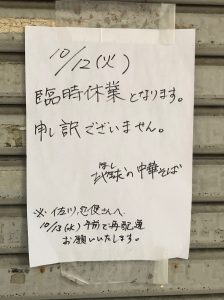 10/12(火)
臨時休業となります。
申し訳ございません。
ほし
の中華そば
※佐川急便さんへ
10/13(水)午前で再配達
お願いいたします。